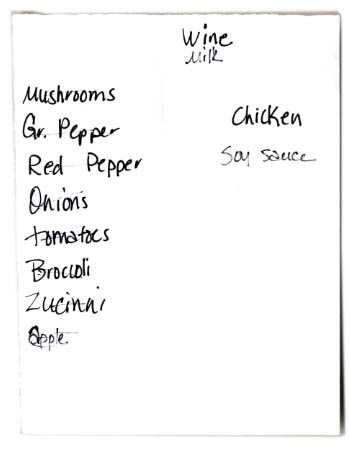 Wine
Milk
Mushrooms
Gr. Pepper
Red Pepper
Onions
tomatoes
Broccoli
Zucinni
Apple
Chicken
Soy sauce